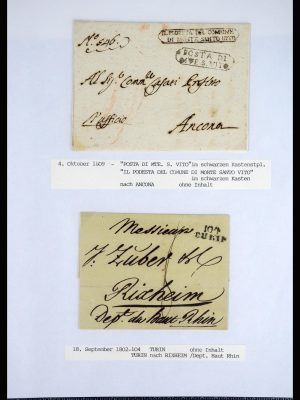 No. 646.
IL PODESTA DEL COMUNE
DI MONTE SANTO VITO
POSTA DI
MTE. S. VITO
Al Sig.
Ancona
4. Oktober 1809 - "POSTA DI MTE. S. VITO" in schwarzen Kastenstpl.
"IL PODESTA DEL COMUNE DI MONTE SANTO VITO"
in schwarzem Kasten
nach ANCONA ohne Inhalt
Messieurs
104
TURIN
J. Zuber & C
Rixheim
Dept. du haut Rhin
18. September 1802-104 TURIN ohne Inhalt
TURIN nach RIXHEIM /Dept. Haut Rhin